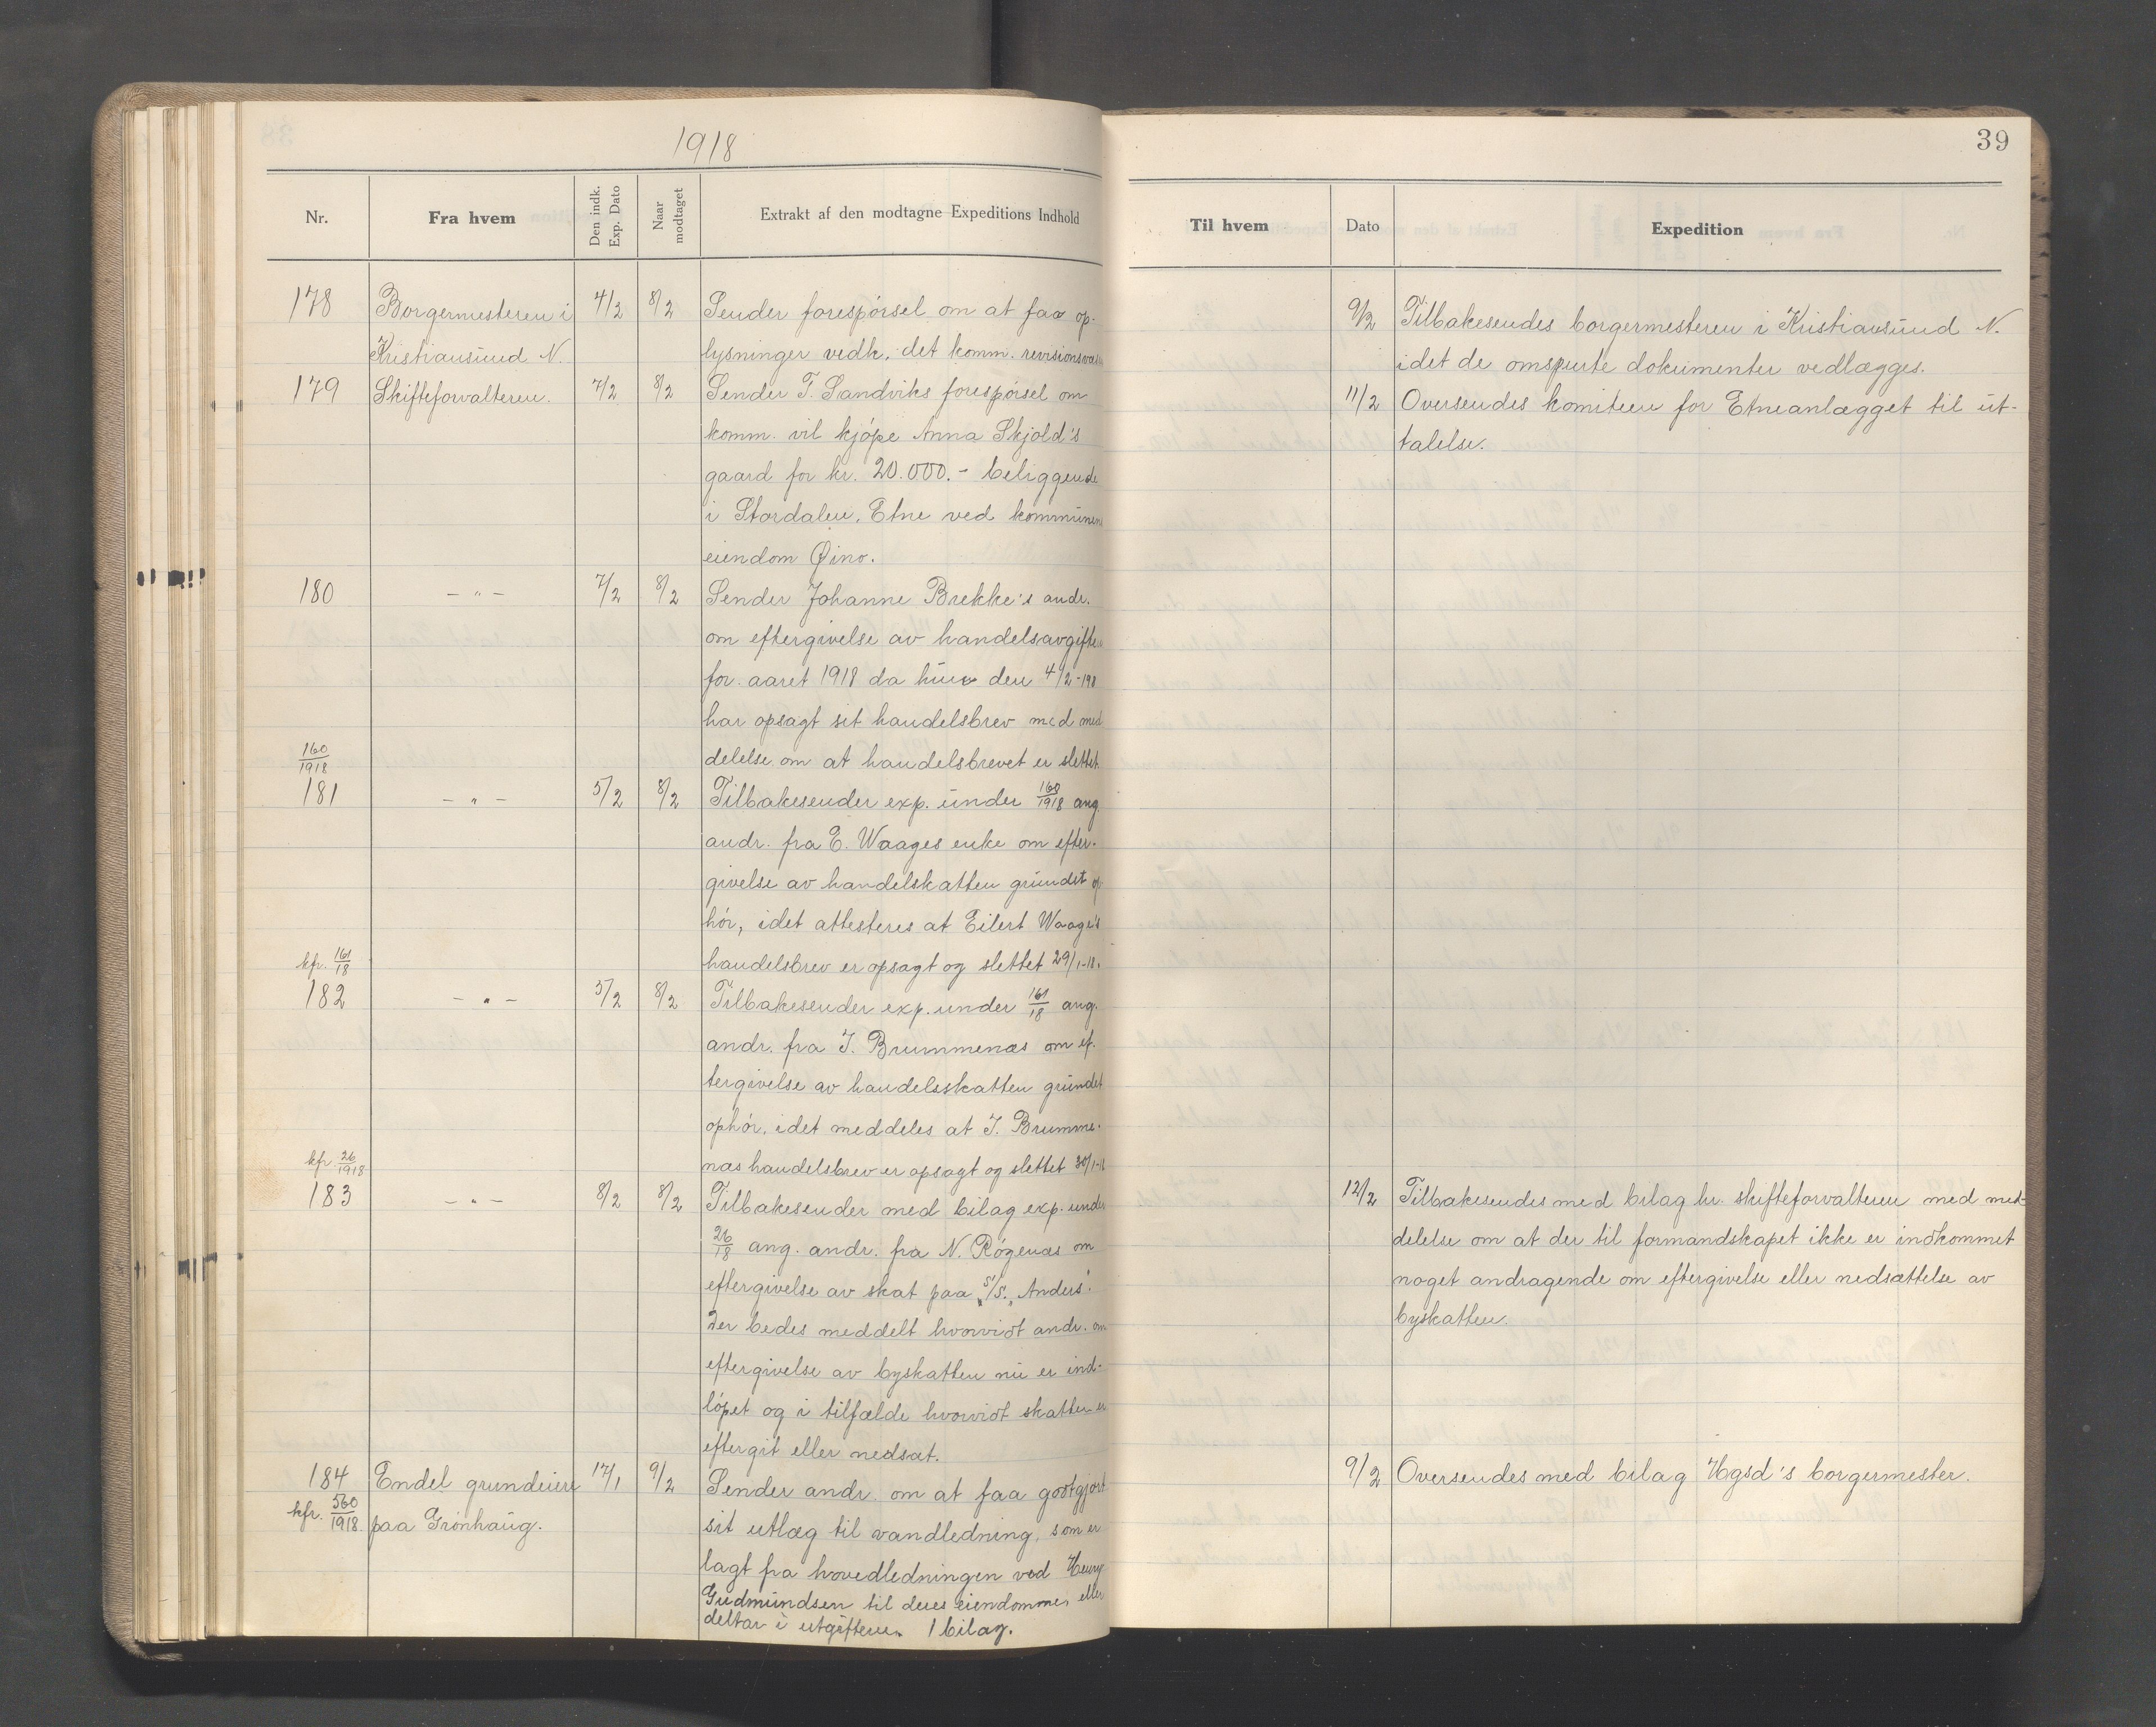 1918
Nr.
Fra hvem
Den indk. Exp. Dato
Naar modtaget
Extrakt af den modtagne Expeditions Indhold
178
Borgermesteren i
4/2
8/2
Sender forespørsel om at faa op-
Kristiansund N.
lysninger vedk. det komm. revisionsvæs
179
Skifteforvalteren.
7/2
8/2
Sender T. Sandviks forespørsel om
komm. vil kjøpe Anna Skjold's
gaard for kr. 20.000.- beliggende
i Stordalen, Etne ved kommunens
eiendom Øino.
180
- " -
7/2
8/2
Sender Johanne Brekke's andr.
om eftergivelse av handelsavgiften
for aaret 1918 da hun den 4/2-1918
har opsagt sit handelsbrev med med
delelse om at handelsbrevet er slettet.
160/1918
181
- " -
5/2
8/2
Tilbakesender exp. under 160/1918 ang.
andr. fra E. Waages enke om efter-
givelse av handelskatten grundet op
hør, idet attesteres at Eilert Waage's
handelsbrev er opsagt og slettet 29/1-18.
kfr. 161/18
182
- " -
5/2
8/2
Tilbakesender exp. under 161/18 ang.
andr. fra J. Brummenæs om ef-
tergivelse av handelsskatten grundet
ophør, idet meddeles at J. Brumme-
næs handelsbrev er opsagt og slettet 30/1-18
kfr 26/1918
183
- " -
8/2
8/2
Tilbakesender med bilag exp. under
26/18 ang. andr. fra N. Røgenæs om
eftergivelse av skat paa "S/S. Anders".
Der bedes meddelt hvorvidt andr. om
eftergivelse av byskatten nu er ind-
løpet og i tilfælde hvorvidt skatten er
eftergit eller nedsat.
184
Endel grundeiere
17/1
9/2
Sender andr. om at faa godtgjort
kfr. 560/1918.
paa Grønhaug.
sit utlæg til vandledning, som er
lagt fra hovedledningen ved Henry
Gudmundsen til deres eiendomme, eller
deltar i utgifterne. 1 bilag.
39
Til hvem
Dato
Expedition
9/2
Tilbakesendes borgermesteren i Kristiansund N.
idet de omspurte dokumenter vedlægges.
11/2
Oversendes komiteen for Etneanlægget til ut-
talelse.
12/2
Tilbakesendes med bilag hr. skifteforvalteren med med-
delelse om at der til formandskapet ikke er indkommet
noget andragende om eftergivelse eller nedsættelse av
byskatten.
9/2
Oversendes med bilag Hgsd's borgermester.